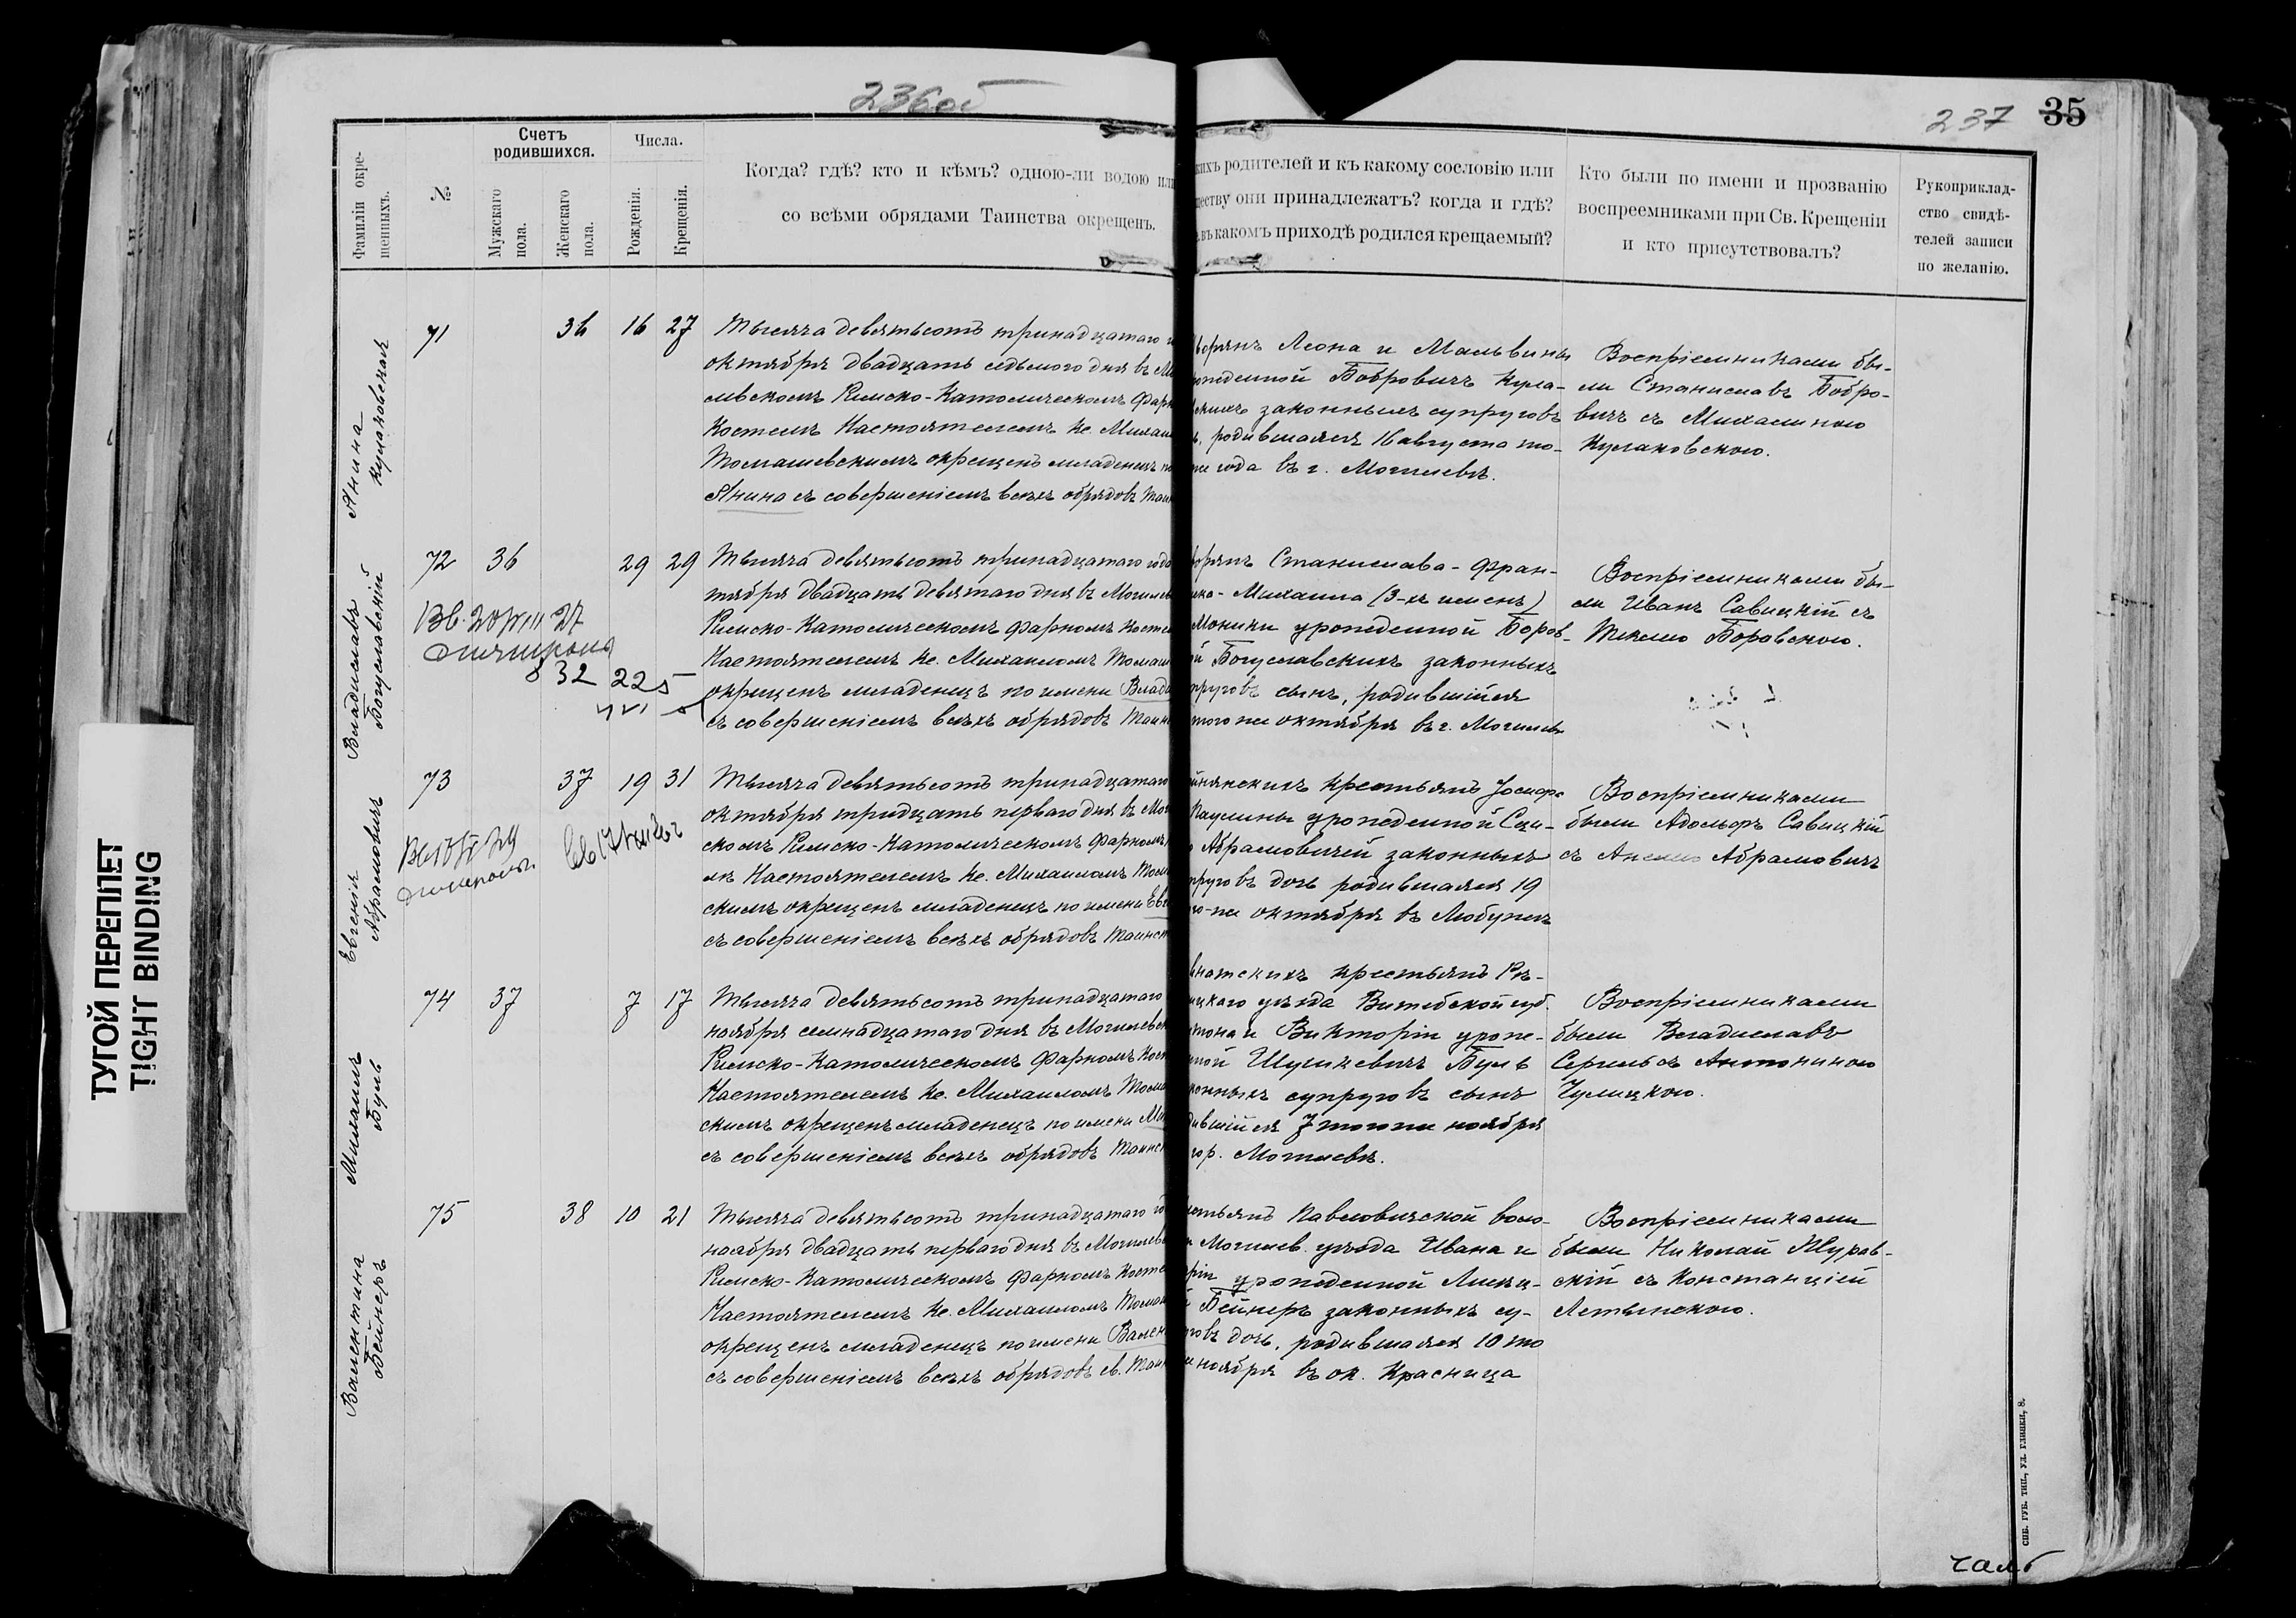 236об
237 35
ТУГОЙ ПЕРЕПЛЕТ
TIGHT BINDING
Фамиліи окре-
щенныхъ.
№
Счетъ
родившихся.
Мужскаго
пола.
Женскаго
пола.
Числа.
Рожденія.
Крещенія.
Когда? гдѣ? кто и кѣмъ? одною-ли водою или
со всѣми обрядами Таинства окрещенъ.
кихъ родителей и къ какому сословію или
ществу они принадлежатъ? когда и гдѣ?
въ какомъ приходѣ родился крещаемый?
Кто были по имени и прозванію
воспреемниками при Св. Крещеніи
и кто присутствовалъ?
Рукоприклад-
ство свидѣ-
телей записи
по желанію.
Янина
Кулаковская
71 36 16 27
Тысяча девятьсотъ тринадцатаго
октября двадцать седьмого дня въ Мо
левскомъ Римско-Католическомъ Фарн
Костелѣ Настоятелемъ Кс. Михаи
Томашевскимъ окрещенъ младенецъ по
Янина съ совершеніемъ всѣхъ обрядовъ Таин
ворянъ Леона и Мальвины
рожденной Бобровичъ Кула-
скихъ законныхъ супруговъ
ь, родившаяся 16 августа то-
же года въ г. Могилевѣ.
Воспріемниками бы-
ли Станиславъ Бобро-
вичъ съ Михалиною
Кулаковскою.
Владиславъ
Богуславскій
72 36 29 29
Тысяча девятьсотъ тринадцатаго года
тября двадцать девятаго дня въ Могилев
Римско-Католическомъ Фарномъ Косте
Настоятелемъ Кс. Михаиломъ Томаш
окрещенъ младенецъ по имени Влади
съ совершеніемъ всѣхъ обрядовъ Таин
ворянъ Станислава-Фран-
ка-Михаила (3-хъ именъ)
Моники урожденной Боров-
й Богуславскихъ законныхъ
пруговъ сынъ, родившійся
того же октября въ г. Могилевѣ
Воспріемниками бы-
ли Иванъ Савицкій съ
Теклею Боровскою.
32 225
Евгенія
Абрамовичъ
73 37 19 31
Тысяча девятьсотъ тринадцатаго
октября тридцать перваго дня въ Мог
скомъ Римско-Католическомъ Фарномъ
лѣ Настоятелемъ Кс. Михаиломъ Тома
скимъ окрещенъ младенецъ по имени Евг
съ совершеніемъ всѣхъ обрядовъ Таинст
крестьянъ Іосифа
Паулины урожденной Сци-
Абрамовичей законныхъ
пруговъ дочь родившаяся 19
го-же октября въ Любужѣ
Воспріемниками
были Адольфъ Савицкій
съ Анелею Абрамовичъ
Михаилъ
Буль
74 37 7 17
Тысяча девятьсотъ тринадцатаго
ноября семнадцатаго дня въ Могилевск
Римско-Католическомъ Фарномъ Кост
Настоятелемъ Кс. Михаиломъ Тома
скимъ окрещенъ младенецъ по имени Ми
съ совершеніемъ всѣхъ обрядовъ Таинст
крестьянъ Рѣ-
ицкаго уѣзда Витебской губ.
тона и Викторіи урож-
ной Шушкевичъ Буль
конныхъ супруговъ сынъ
дившійся 7 того же ноября
гор. Могилевѣ.
Воспріемниками
были Владиславъ
съ Антониною
Чулицкою.
Валентина
Бейнеръ
75 38 10 21
Тысяча девятьсотъ тринадцатаго го
ноября двадцать перваго дня въ Могилевс
Римско-Католическомъ Фарномъ Косте
Настоятелемъ Кс. Михаиломъ Томаш
окрещенъ младенецъ по имени Вален
съ совершеніемъ всѣхъ обрядовъ св. Таин
естьянъ Павловичской воло-
и Могилев. уѣзда Ивана и
ріи урожденной
й Бейнеръ законныхъ су-
говъ дочь, родившаяся 10 то
же ноября въ ок. Красница
Воспріемниками
были Николай Журав-
скій съ Констанціей
Летынскою.
СПБ. ГУБ. ТИП., УЛ. ГЛИНКИ, 8.